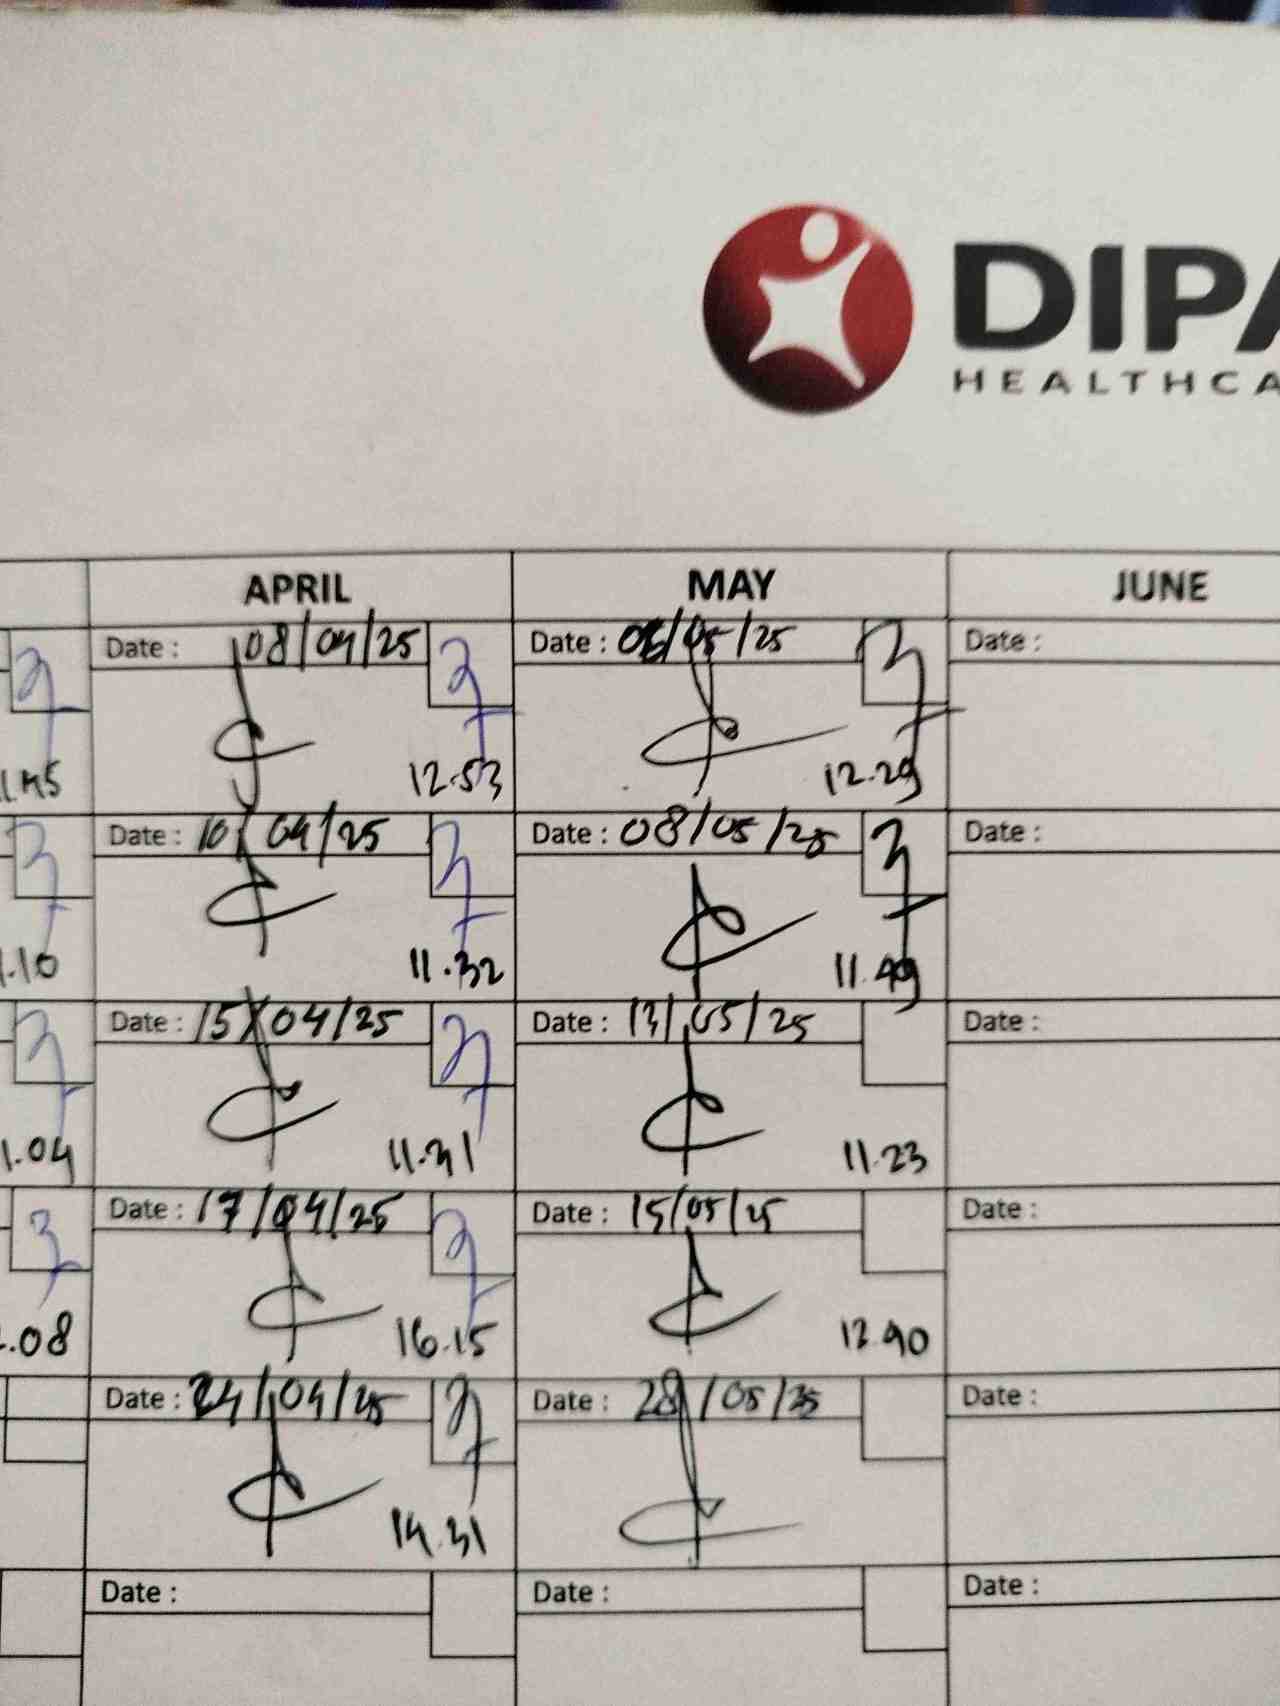 DIPA
HEALTHCA
APRIL MAY JUNE
Date : 08/04/25 Date : 06/05/25 Date :
12.53 12.29
Date : 10/04/25 Date : 08/05/25 Date :
.10 11.32 11.49
Date : 15/04/25 Date : 13/05/25 Date :
1.04 11.31 11.23
Date : 17/04/25 Date : 15/05/25 Date :
.08 16.15 12.40
Date : 24/04/25 Date : 28/05/25 Date :
14.31
Date : Date : Date :